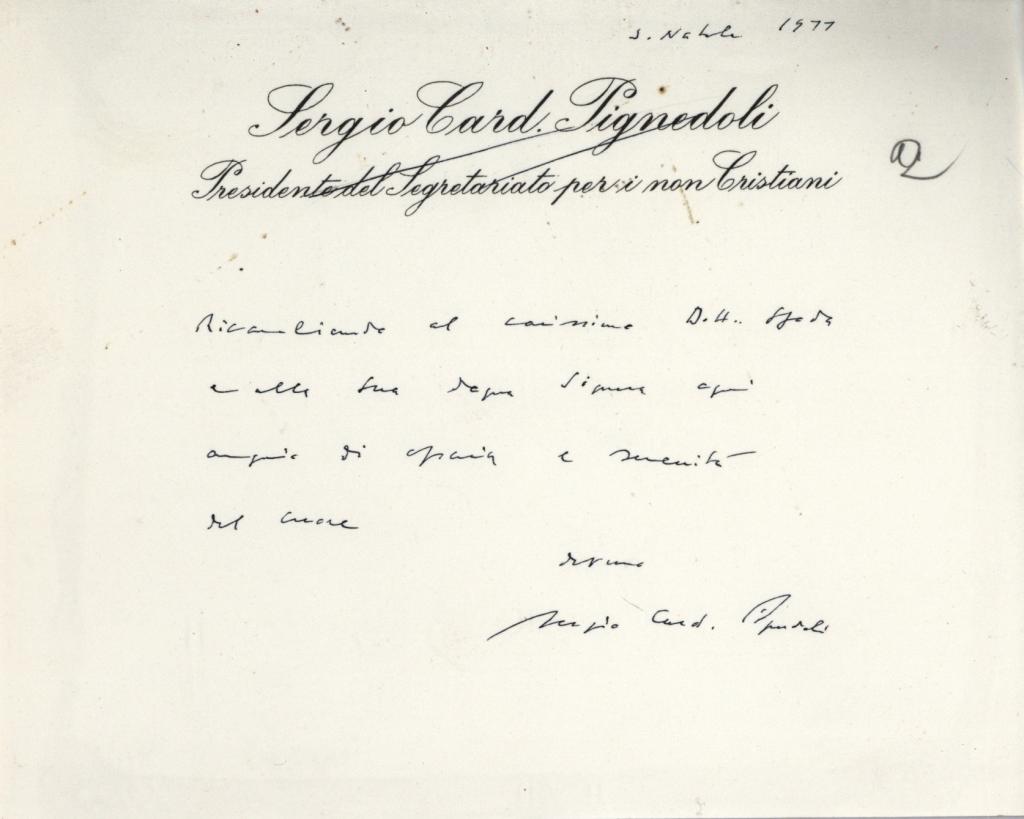 S. Natale 1977
Sergio Card. Pignedoli
Presidente del Segretariato per i non Cristiani
Ricambiando al carissimo Dott. Spada
e alla sua degna Signora ogni
augurio di grazia e serenità
del cuore
dev.mo
Sergio Card. Pignedoli